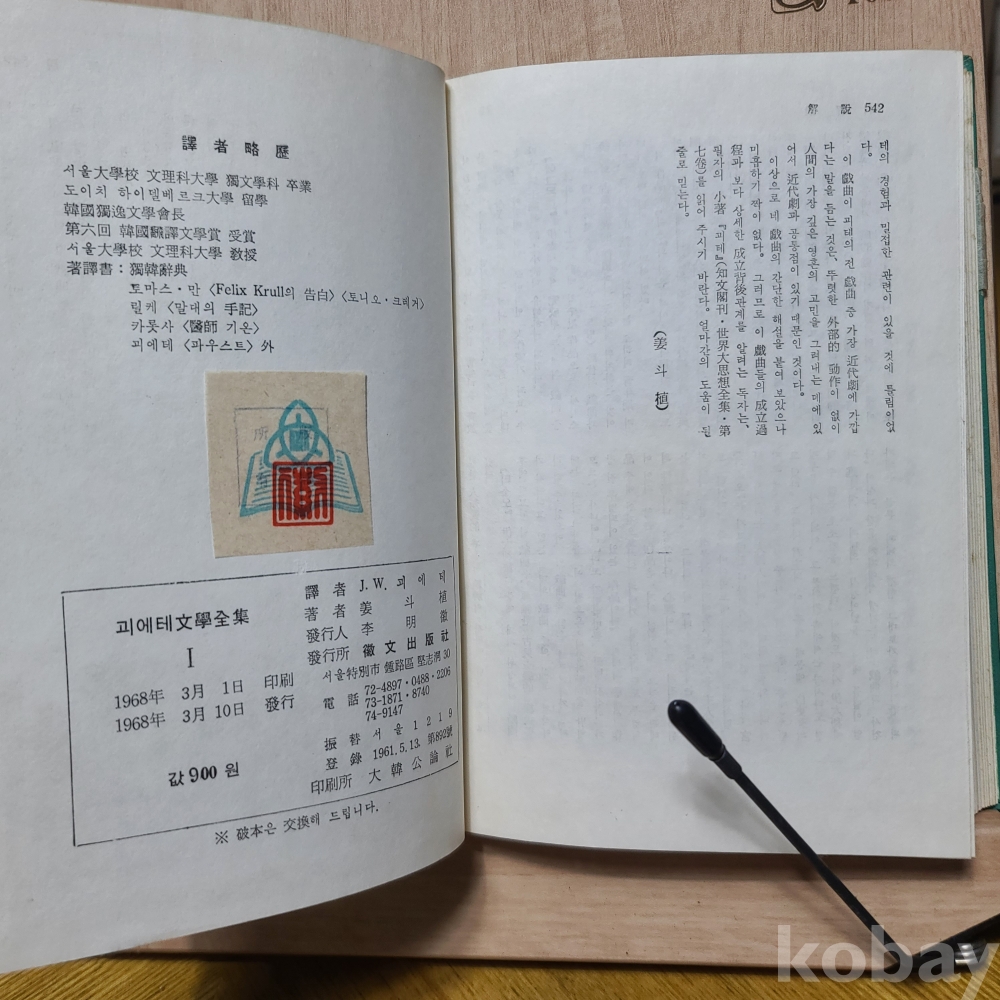 譯者略歷
서울大學校 文理科大學 獨文學科 卒業
도이치 하이델베르크大學 留學
韓國獨逸文學會長
第六回 韓國飜譯文學賞 受賞
서울大學校 文理科大學 敎授
著譯書：獨韓辭典
토마스・만 〈Felix Krull의 告白〉〈토니오・크레거〉
릴케 〈말테의 手記〉
카롯사 〈醫師 기온〉
괴에테 〈파우스트〉外
괴에테文學全集
I
1968年 3月 1日 印刷
1968年 3月 10日 發行
값 900 원
譯者 J.W. 괴에테
著者 姜斗植
發行人 李明徽
發行所 徽文出版社
서울特別市 鍾路區 堅志洞 30
電話 72-4897・0488・2206
73-1871・8740
74-9147
振替 서울 1219
登錄 1961.5.13. 第892號
印刷所 大韓公論社
※ 破本은 交換해 드립니다.
解說 542
테의 경험과 밀접한 관련이 있을 것에 틀림이없
다。
이 戱曲이 괴테의 전 戱曲 중 가장 近代劇에 가깝
다는 말을 듣는 것은、뚜렷한 外部的 動作이 없이
人間의 가장 깊은 영혼의 고민을 그려내는 데에 있
어서 近代劇과 공통점이 있기 때문인 것이다。
이상으로 네 戱曲의 간단한 해설을 붙여 보았으나
미흡하기 짝이 없다。그러므로 이 戱曲들의 成立過
程과 보다 상세한 成立背後관계를 알려는 독자는、
필자의 小著『괴테』(知文閣刊・世界大思想全集・第
七卷)를 읽어 주시기 바란다。얼마간의 도움이 된
줄로 믿는다。
(姜斗植)
kobay